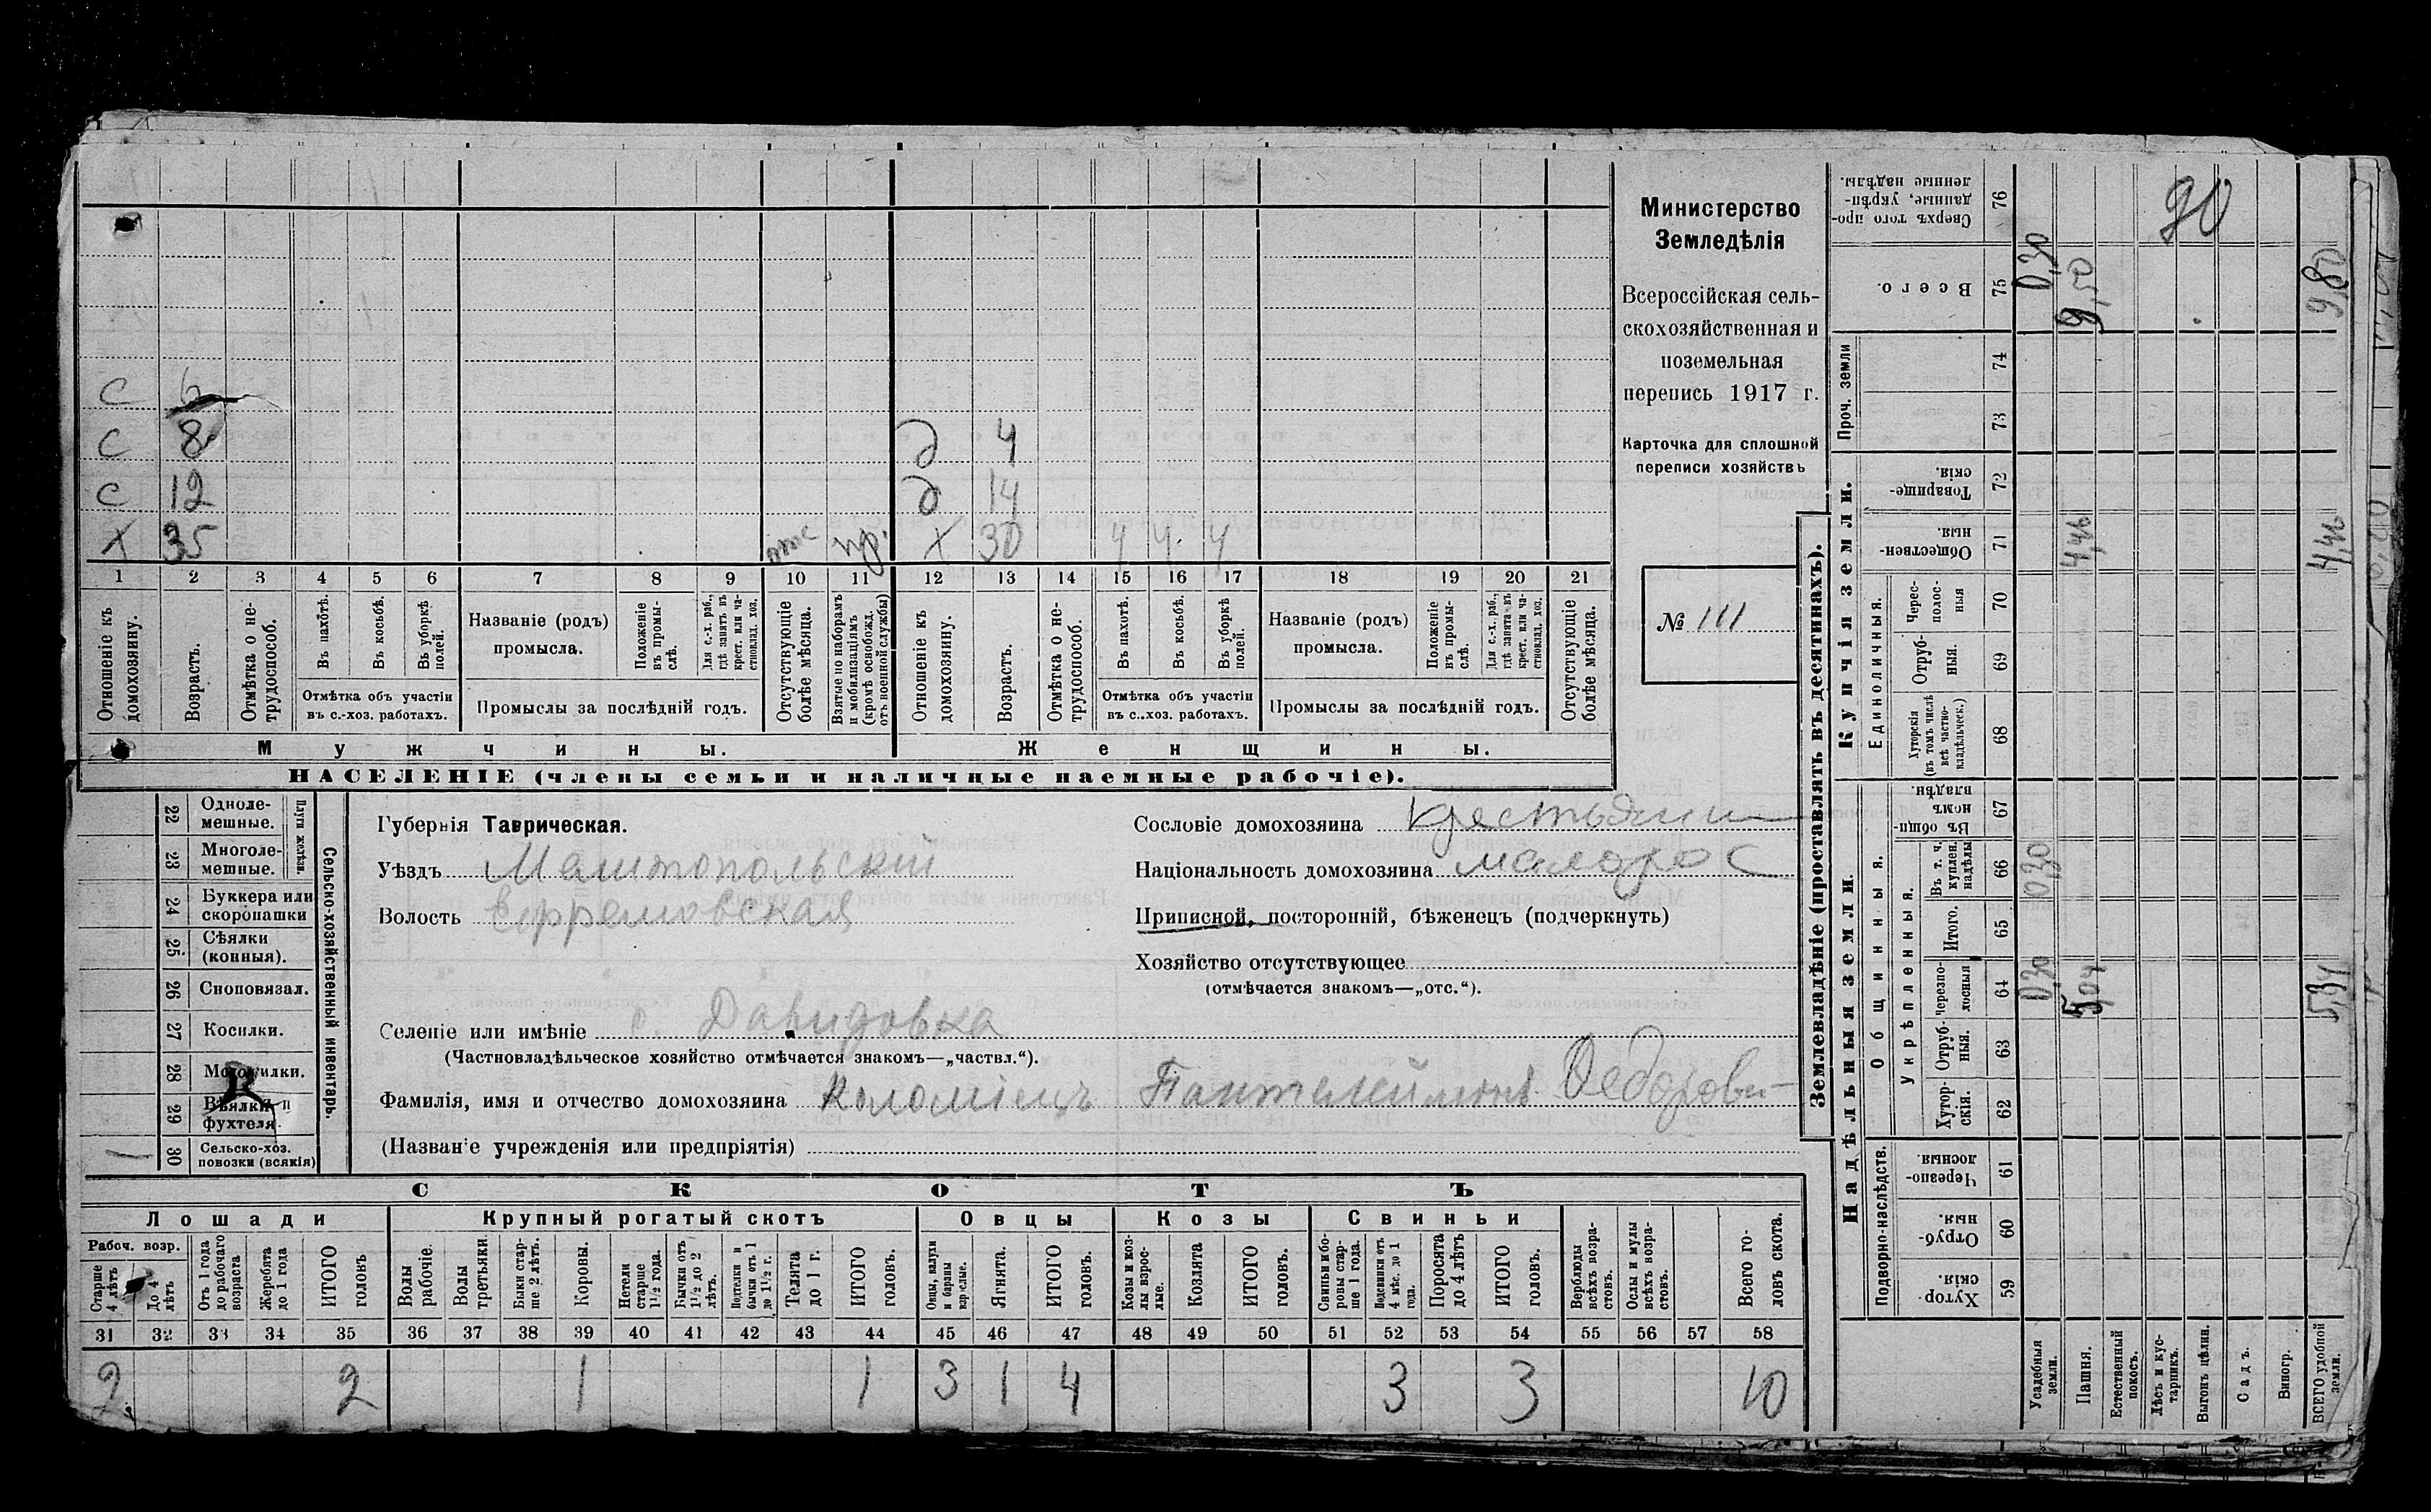 Министерство
Земледѣлія
Всероссійская сель-
скохозяйственная и
поземельная
перепись 1917 г.
Карточка для сплошной
переписи хозяйствъ
№ 111
С 6
С 8 д 4
С 12 д 14
Х 35 пр. Х 30 Ч Ч Ч
1 2 3 4 5 6 7 8 9 10 11 12 13 14 15 16 17 18 19 20 21
Отношеніе къ домохозяину.
Возрастъ.
Отмѣтка о не-трудоспособ.
Въ пахотѣ.
Въ косьбѣ.
Въ уборкѣ полей.
Отмѣтка объ участіи
въ с.-хоз. работахъ.
Названіе (родъ)
промысла.
Положеніе въ промы-слѣ.
Для с.-х. раб., гдѣ занятъ въ крест. или ча-стновлад. хоз.
Промыслы за послѣдній годъ.
Отсутствующіе болѣе мѣсяца.
Взятые по наборамъ и мобилизаціямъ (кромѣ освобожд. отъ военной службы)
Отношеніе къ домохозяину.
Возрастъ.
Отмѣтка о не-трудоспособ.
Въ пахотѣ.
Въ косьбѣ.
Въ уборкѣ полей.
Отмѣтка объ участіи
въ с.-хоз. работахъ.
Названіе (родъ)
промысла.
Положеніе въ промы-слѣ.
Для с.-х. раб., гдѣ занята въ крест. или ча-стновлад. хоз.
Промыслы за послѣдній годъ.
Отсутствующіе болѣе мѣсяца.
Мужчины. Женщины.
НАСЕЛЕНІЕ (члены семьи и наличные наемные рабочіе).
Сельско-хозяйственный инвентарь.
Плуги желѣзн.
22 Одноле-мешные.
23 Многоле-мешные.
24 Буккера или скоропашки
25 Сѣялки (конныя).
26 Сноповязал.
27 Косилки.
28 Молотилки.
29 Вѣялки и фухтеля.
30 Сельско-хоз. повозки (всякія)
Губернія Таврическая.
Уѣздъ Мелитопольскій
Волость Ефремовская
Селеніе или имѣніе с. Давидовка
(Частновладѣльческое хозяйство отмѣчается знакомъ—„частвл.“).
Фамилія, имя и отчество домохозяина Коломіецъ Пантелеймонъ Федорови
(Названіе учрежденія или предпріятія)
Сословіе домохозяина крестьянин
Національность домохозяина малорос
Приписной, посторонній, бѣженецъ (подчеркнуть)
Хозяйство отсутствующее
(отмѣчается знакомъ—„отс.“).
СКОТЪ
Лошади Крупный рогатый скотъ Овцы Козы Свиньи
Рабоч. возр.
Старше 4 лѣтъ
До 4 лѣтъ
Отъ 1 года до рабочаго возраста
Жеребята до 1 года
ИТОГО головъ
Волы рабочіе.
Волы третьяки.
Быки стар-ше 2 лѣтъ.
Коровы.
Нетели старше 1½ года.
Бычки отъ 1½ до 2 лѣтъ.
Подтелки и бычки отъ 1 до 1½ г.
Телята до 1 г.
ИТОГО головъ.
Овцы, валухи и бараны взрослые.
Ягнята.
ИТОГО головъ.
Козы и коз-лы взрос-лые.
Козлята
ИТОГО головъ.
Свиньи и бо-ровы стар-ше 1 года.
Подсвинки отъ 4 мѣс. до 1 года.
Поросята до 4 лѣтъ
ИТОГО головъ.
Верблюды всѣхъ возра-стовъ.
Ослы и мулы всѣхъ возра-стовъ.
Всего го-ловъ скота.
31 32 33 34 35 36 37 38 39 40 41 42 43 44 45 46 47 48 49 50 51 52 53 54 55 56 57 58
2 2 1 1 3 1 4 3 3 10
Землевладѣніе (проставлять въ десятинахъ).
Надѣльныя земли.
Купчія земли.
Проч. земли
Подворно-наслѣдств.
Общинныя.
Укрѣпленныя.
Единоличныя.
76 Сверхъ того про-данные, укрѣп-ленные надѣлы.
90
75 Всего.
0,30 9,50 9,80
74
73
72 Товарище-скія.
71 Обществен-ныя.
4,46 4,46
70 Черес-полос-ныя
69 Отруб-ныя.
68 Хуторскія (въ томъ числѣ всѣ частно-владѣльческ.)
67 Въ общин-номъ владѣн.
66 Въ т. ч. куплен. надѣлы
65 Итого.
64 Черезпо-лосныя
0,30 5,04 5,34
63 Отруб-ныя.
62 Хутор-скія.
61 Черезпо-лосныя.
60 Отруб-ныя.
59 Хутор-скія.
Усадебныя земли.
Пашня.
Естественный покосъ.
Лѣсъ и кус-тарникъ.
Выгонъ цѣлин.
Садъ.
Виногр.
ВСЕГО удобной земли.